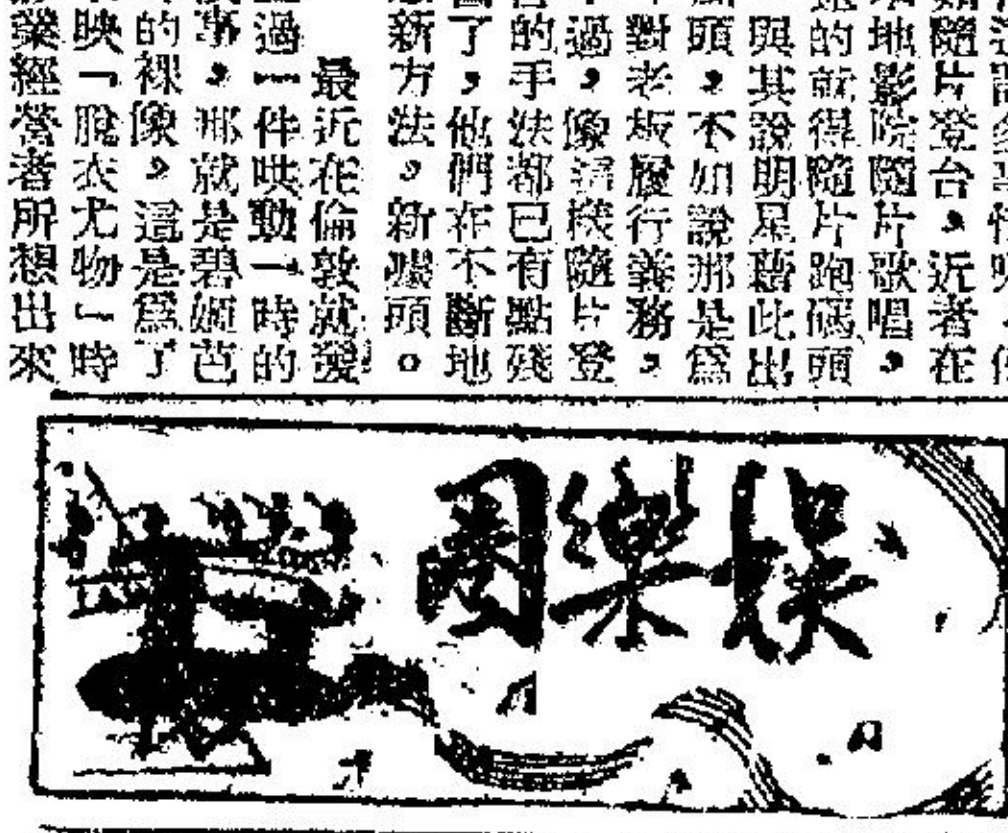 隨片登台，近者在
地影院隨片歌唱，
的就得隨片跑碼頭
與其說明星藉此出
頭，不如說那是爲
對老板履行義務，
過，像這樣隨片登
的手法都已有點殘
了，他們在不斷地
新方法，新噱頭。
最近在倫敦就發
過一件哄動一時的
事，那就是碧姬芭
的裸像，這是爲了
映「脫衣尤物」時
業經營者所想出來
娛樂圈